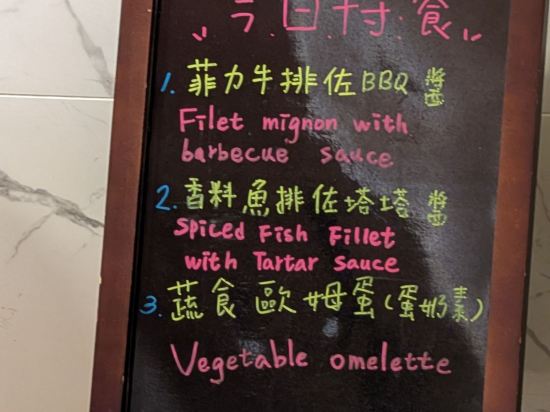 今日特食
1. 菲力牛排佐BBQ醬
Filet mignon with
barbecue sauce
2. 香料魚排佐塔塔醬
Spiced Fish Fillet
with Tartar Sauce
3. 蔬食歐姆蛋(蛋奶素)
Vegetable omelette